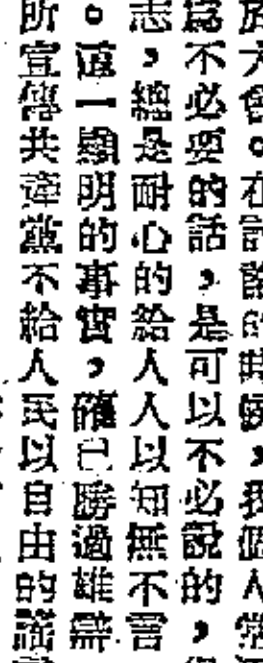 於大會。在討論的時候,我個人常
爲不必要的話,是可以不必說的,
志,總是耐心的給人人以知無不言
。這一顯明的事實,確已勝過雄辯
所宣傳共產黨不給人民以自由的謠